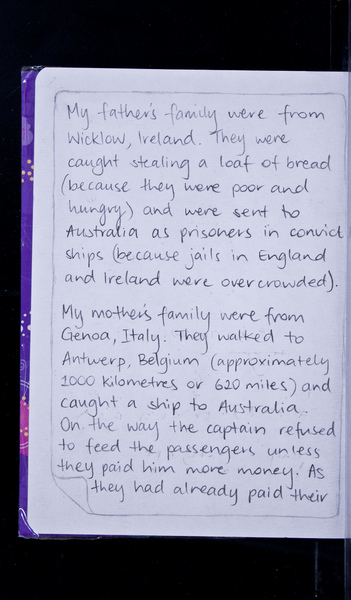 My father's family were from
Wicklow, Ireland. They were
caught stealing a loaf of bread
(because they were poor and
hungry) and were sent to
Australia as prisoners in convict
ships (because jails in England
and Ireland were overcrowded).
My mother's family were from
Genoa, Italy. They walked to
Antwerp, Belgium (approximately
1000 kilometres or 620 miles) and
caught a ship to Australia.
On the way the captain refused
to feed the passengers unless
they paid him more money. As
they had already paid their